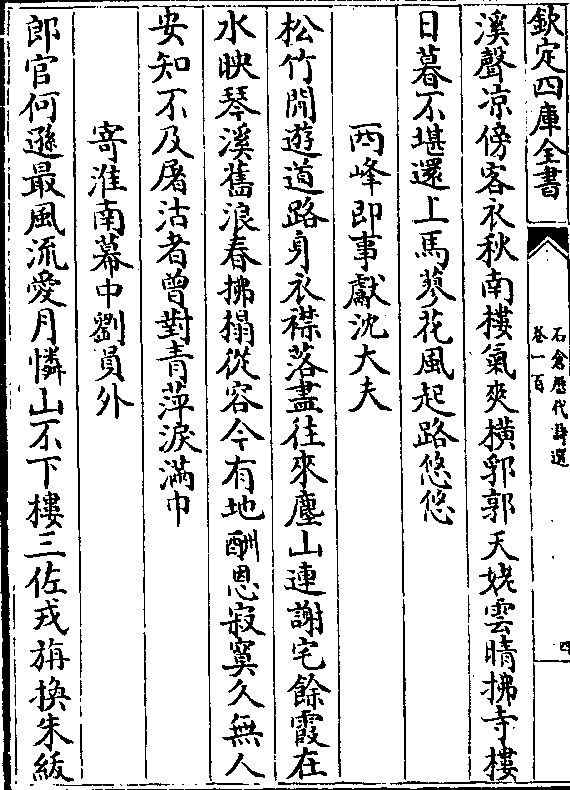 欽定四庫全書
石倉歴代詩選
卷一百
四
溪聲凉傍客衣秋南樓氣爽横郛郭天姥雲晴拂寺樓
日暮不堪還上馬蓼花風起路悠悠
西峰即事獻沈大夫
松竹閒遊道路身衣襟落盡往來塵山連謝宅餘霞在
水映琴溪舊浪春拂榻從容今有地酬恩寂寞久無人
安知不及屠沽者曾對青萍淚滿巾
寄淮南幕中劉員外
郎官何遜最風流愛月憐山不下樓三佐戎旃換朱紱